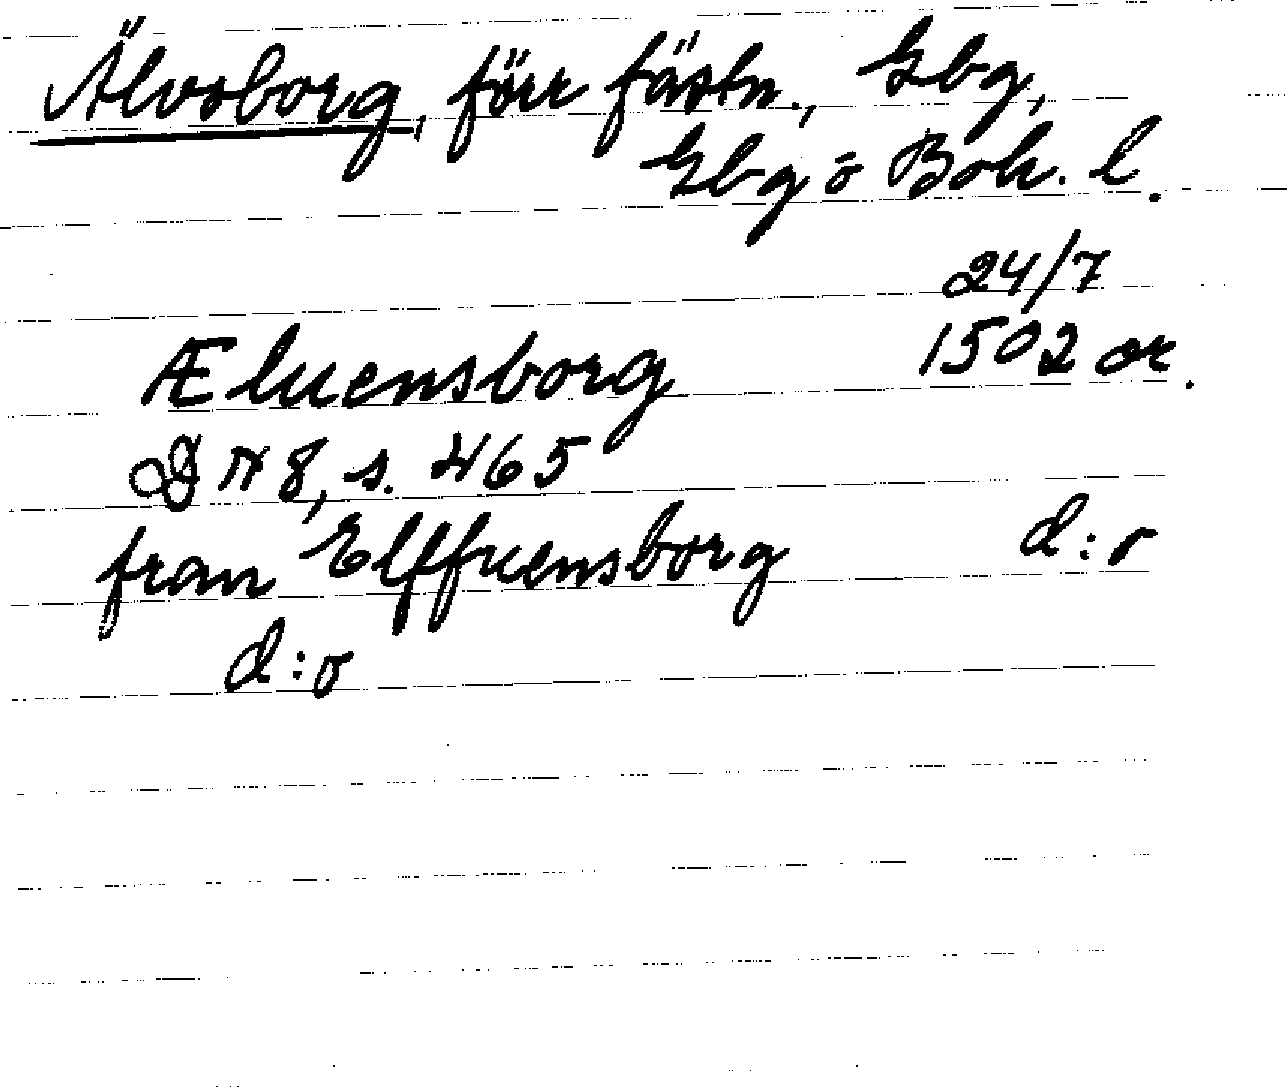 Älvsborg, förr fästn., Gbg,
Gbg o Boh. l.
24/7
Æluensborg 1502 or.
DN 8, s. 465
fran Elffuensborg d:o
d:o